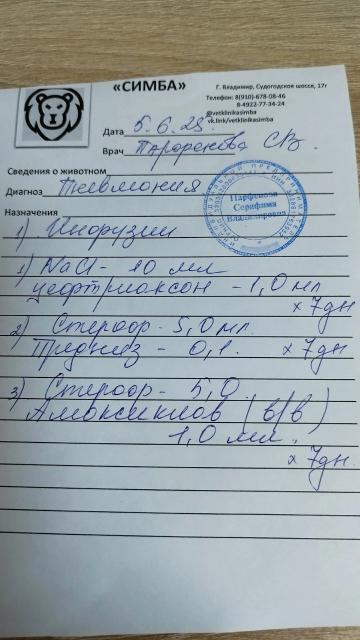 «СИМБА»
Г. Владимир, Судогодское шоссе, 17г
Телефон: 8(910)-678-08-46
8-4922-77-34-24
@vetklinikasimba
vk.link/vetklinikasimba
Дата 5.6.25.
Врач Парфенова СВ.
Сведения о животном
Диагноз Пневмония
Парфенова
Серафима
Владимировна
Назначения
1) Инфузии
1) NaCl - 10 мл
цефтриаксон - 1,0 мл
х 7дн
2) Стерофр - 5,0 мл.
Предниз - 0,1. х 7дн
3) Стерофр - 5,0
Амоксиклав (в/в)
1,0 мл.
х 7дн.